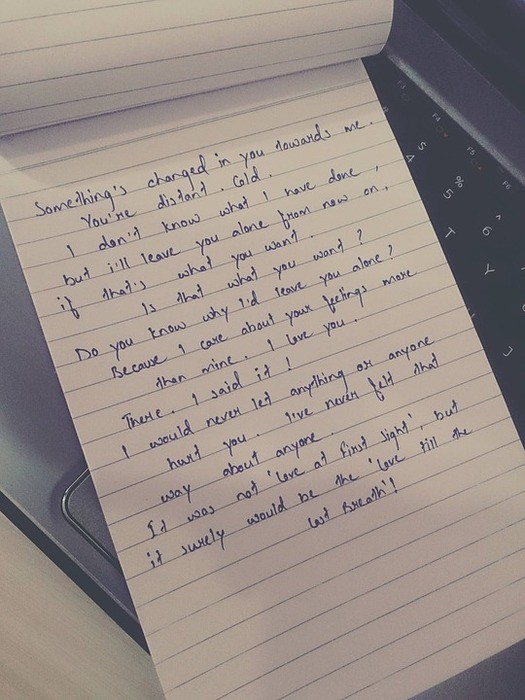 Something's changed in you towards me.
You're distant. Cold.
I don't know what I have done,
but i'll leave you alone from now on,
if that's what you want.
Is that what you want?
Do you know why I'd leave you alone?
Because I care about your feelings more
than mine. I love you.
There. I said it!
I would never let anything or anyone
hurt you. I've never felt that
way about anyone.
It was not 'love at first sight', but
it surely would be the 'love till the
last Breath'!
$
4
%
5
^
6
T
Y
J
F4
F5
F6